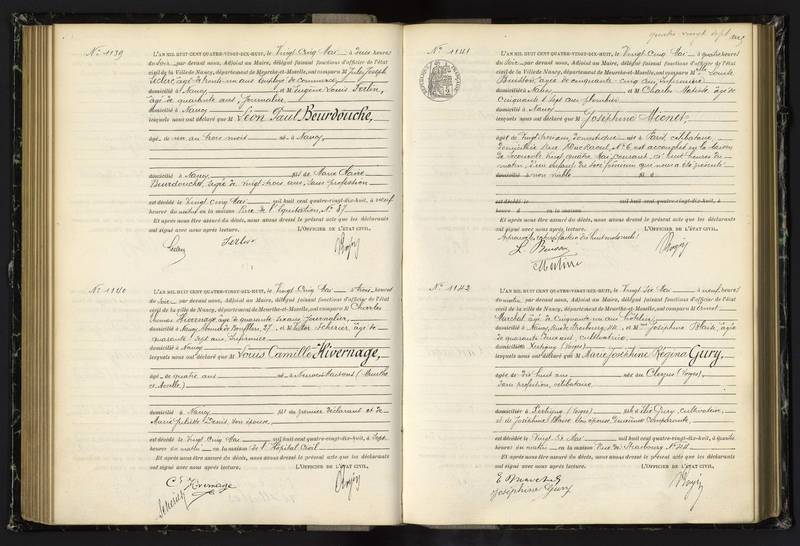 N° 1139
L'AN MIL HUIT CENT QUATRE-VINGT-DIX-HUIT, le Vingt Cinq Mai à heures
du soir par devant nous, Adjoint au Maire, délégué faisant fonctions d'officier de l'état
civil de la Ville de Nancy, département de Meurthe-et-Moselle, ont comparu M Jules Joseph
Leclerc âgé de trente un ans Employé de commerce,
domicilié à Nancy et M Eugène Louis
âgé de quarante ans, Journalier,
domicilié à Nancy
lesquels nous ont déclaré que M Léon Paul Beurdouche,
âgé de un an trois mois né à Nancy,
domicilié à Nancy fils de Marie Claire
Beurdouche, âgée de vingt trois ans, sans profession
est décédé le Vingt Cinq Mai mil huit cent quatre-vingt-dix-huit, à neuf
heures du matin en la maison Rue de l'Equitation, N° 37
Et après nous être assuré du décès, nous avons dressé le présent acte que les déclarants
ont signé avec nous après lecture. L'OFFICIER DE L'ÉTAT CIVIL,
N° 1140
L'AN MIL HUIT CENT QUATRE-VINGT-DIX-HUIT, le Vingt Cinq Mai à trois heures
du soir par devant nous, Adjoint au Maire, délégué faisant fonctions d'officier de l'état
civil de la ville de Nancy, département de Meurthe-et-Moselle, ont comparu M Charles
Thomas Hivernage âgé de quarante ans Journalier,
domicilié à Nancy, 27 et M Victor Scherier âgé de
quarante sept ans, Infirmier
domicilié à Nancy
lesquels nous ont déclaré que M Louis Camille Hivernage,
âgé de quatre ans né à Neuves Maisons (Meurthe
et Moselle)
domicilié à Nancy fils du premier déclarant et de
Marie Denis, son épouse,
est décédé le Vingt Cinq Mai mil huit cent quatre-vingt-dix-huit, à Sept
heures du matin en la maison de l'Hôpital Civil
Et après nous être assuré du décès, nous avons dressé le présent acte que les déclarants
ont signé avec nous après lecture. L'OFFICIER DE L'ÉTAT CIVIL,
C. Hivernage
quatre vingt sept
N° 1141
L'AN MIL HUIT CENT QUATRE-VINGT-DIX-HUIT, le Vingt Cinq Mai à quatre heures
du Soir par devant nous, Adjoint au Maire, délégué faisant fonctions d'officier de l'état
civil de la Ville de Nancy, département de Meurthe-et-Moselle, ont comparu Mlle Louise
âgée de cinquante cinq ans, Infirmière
domiciliée à Nancy et M Charles âgé de
Cinquante sept ans plombier
domicilié à Nancy
lesquels nous ont déclaré que M Joséphine
âgée de vingt ans, domestique née à Paris, célibataire,
domiciliée N° 6 est accouchée en la maison
de secours le vingt quatre Mai courant, à huit heures du
matin, d'un enfant du sexe féminin que nous a été présenté
domicilié à non viable
est décédé le mil huit cent quatre-vingt-dix-huit, à
heures d en la maison
Et après nous être assuré du décès, nous avons dressé le présent acte que les déclarants
ont signé avec nous après lecture. L'OFFICIER DE L'ÉTAT CIVIL,
N° 1142
L'AN MIL HUIT CENT QUATRE-VINGT-DIX-HUIT, le Vingt Six Mai à neuf heures
du matin, par devant nous, Adjoint au Maire, délégué faisant fonctions d'officier de l'état
civil de la Ville de Nancy, département de Meurthe-et-Moselle, ont comparu M Ernest
Marchal âgé de Cinquante un ans hôtelier,
domicilié à Nancy, Rue de Strasbourg, 24 et Mme Joséphine âgée
de quarante ans, cultivatrice
domiciliée à Xertigny (Vosges)
lesquels nous ont déclaré que M Marie Joséphine Régina Gury,
âgée de dix huit ans née au Clerjus (Vosges),
sans profession, célibataire
domiciliée à Xertigny (Vosges) fille d'Elie Gury, cultivateur,
et de Joséphine son épouse, deuxième comparante,
est décédée le Vingt Six Mai mil huit cent quatre-vingt-dix-huit, à quatre
heures du matin en la maison Rue de Strasbourg N° 24
Et après nous être assuré du décès, nous avons dressé le présent acte que les déclarants
ont signé avec nous après lecture. L'OFFICIER DE L'ÉTAT CIVIL,
Joséphine Gury